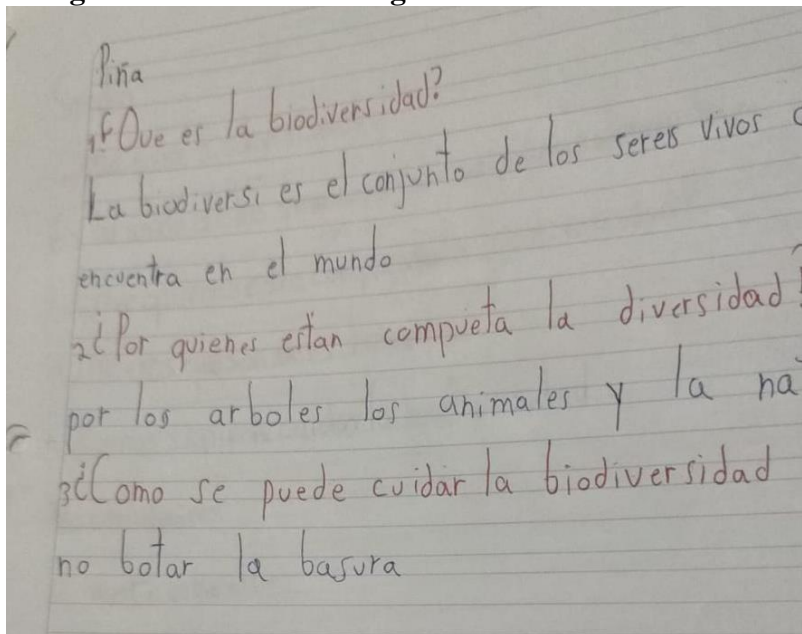 Piña
1¿Que es la biodiversidad?
La biodiversi es el conjunto de los seres vivos
encuentra en el mundo
2¿Por quienes estan compueta la diversidad?
por los arboles los animales y la na
3¿Como se puede cuidar la biodiversidad
no botar la basura